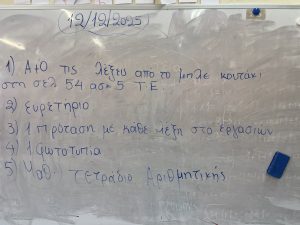 12/12/2025
1) Α+Ο τις λέξεις απο το μπλε κουτάκι
στη σελ 54 ασκ 5 Τ.Ε.
2) Ευρετήριο
3) 1 πρόταση με κάθε λέξη στο εργασιών
4) 1 φωτοτυπία
5) τετράδιο αριθμητικής